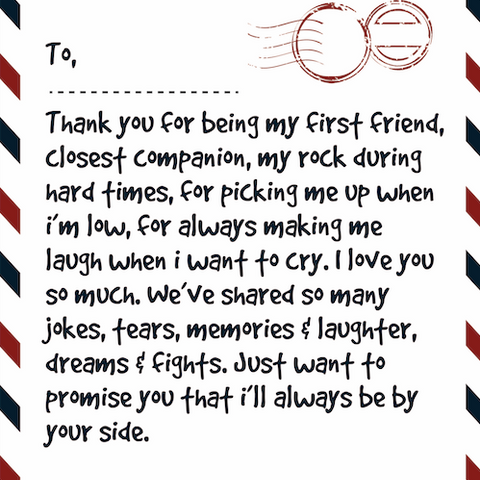 To,
Thank you for being my first friend,
closest companion, my rock during
hard times, for picking me up when
i'm low, for always making me
laugh when i want to cry. I love you
so much. We've shared so many
jokes, tears, memories & laughter,
dreams & fights. Just want to
promise you that i'll always be by
your side.